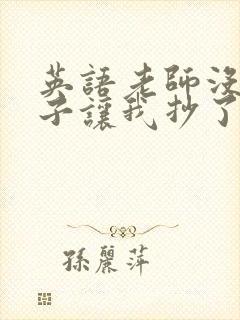 英語老師沒
子讓我抄了
孫麗萍